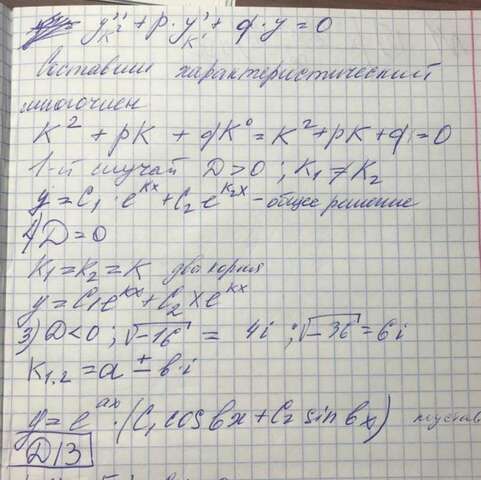 y'' + p · y' + q · y = 0
K² K¹
Составим характеристический
многочлен
K² + pK + qK⁰ = K² + pK + q = 0
1-й случай D > 0 ; K₁ ≠ K₂
y = C₁ · e^{Kx} + C₂ e^{K₂x} - общее решение
D = 0
K₁ = K₂ = K два корня
y = C₁e^{Kx} + C₂ x e^{Kx}
3) D < 0 ; √-16 = 4i ; √-36 = 6i
K₁.₂ = a ± b·i
y = e^{ax} · (C₁ cos bx + C₂ sin bx)
D/З